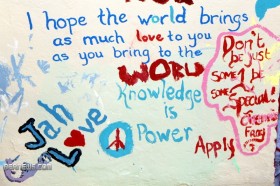 I hope the world brings
as much love to you
as you bring to the
WORLD
Knowledge
is
Power
Jah
Love
Don't
be just
some 1 be
some
Special!
Apply